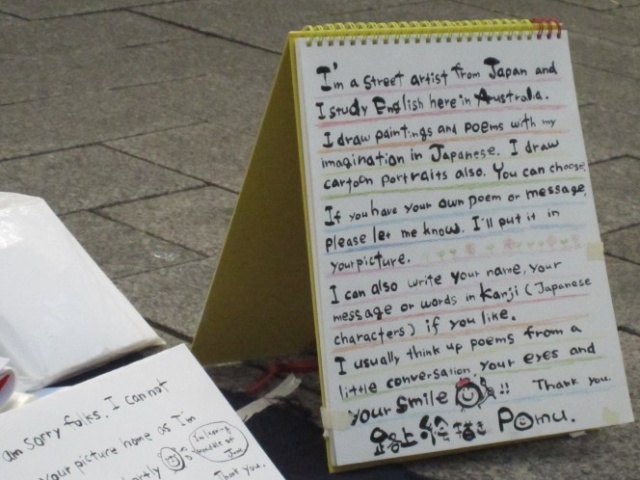 I'm a street artist from Japan and
I study English here in Australia.
I draw paintings and poems with my
imagination in Japanese. I draw
cartoon portraits also. You can choose.
If you have your own poem or message,
please let me know. I'll put it in
your picture.
I can also write your name, your
message or words in Kanji (Japanese
characters) if you like.
I usually think up poems from a
little conversation, your eyes and
your smile !! Thank you.
路上絵描き Pomu.
am sorry folks. I cannot
your picture home as I'm
Thank you.